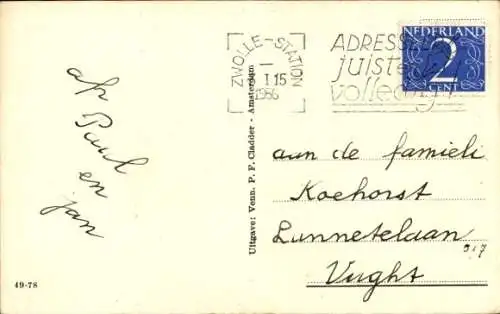 ZWOLLE-STATION
I 15
1956
ADRESSEER
juist en
volledig
NEDERLAND
2
CENT
afz
Paul
en
jan
Uitgave: Venn. P. F. Cladder - Amsterdam
aan de famieli
Koehorst
Lunnetelaan
Vught
49-78